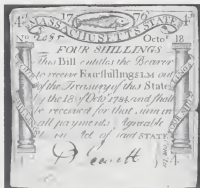 4d 1776 4d
MASSACHUSETTS STATE
No Octr 18
FOUR SHILLINGS
This Bill entitles the Bearer
to receive Four shillings L.M. out
of the Treasury of this State
by the 18 of Octr 1784 and shall
be received for that sum in
all payments Agreable
to an Act of said STATE